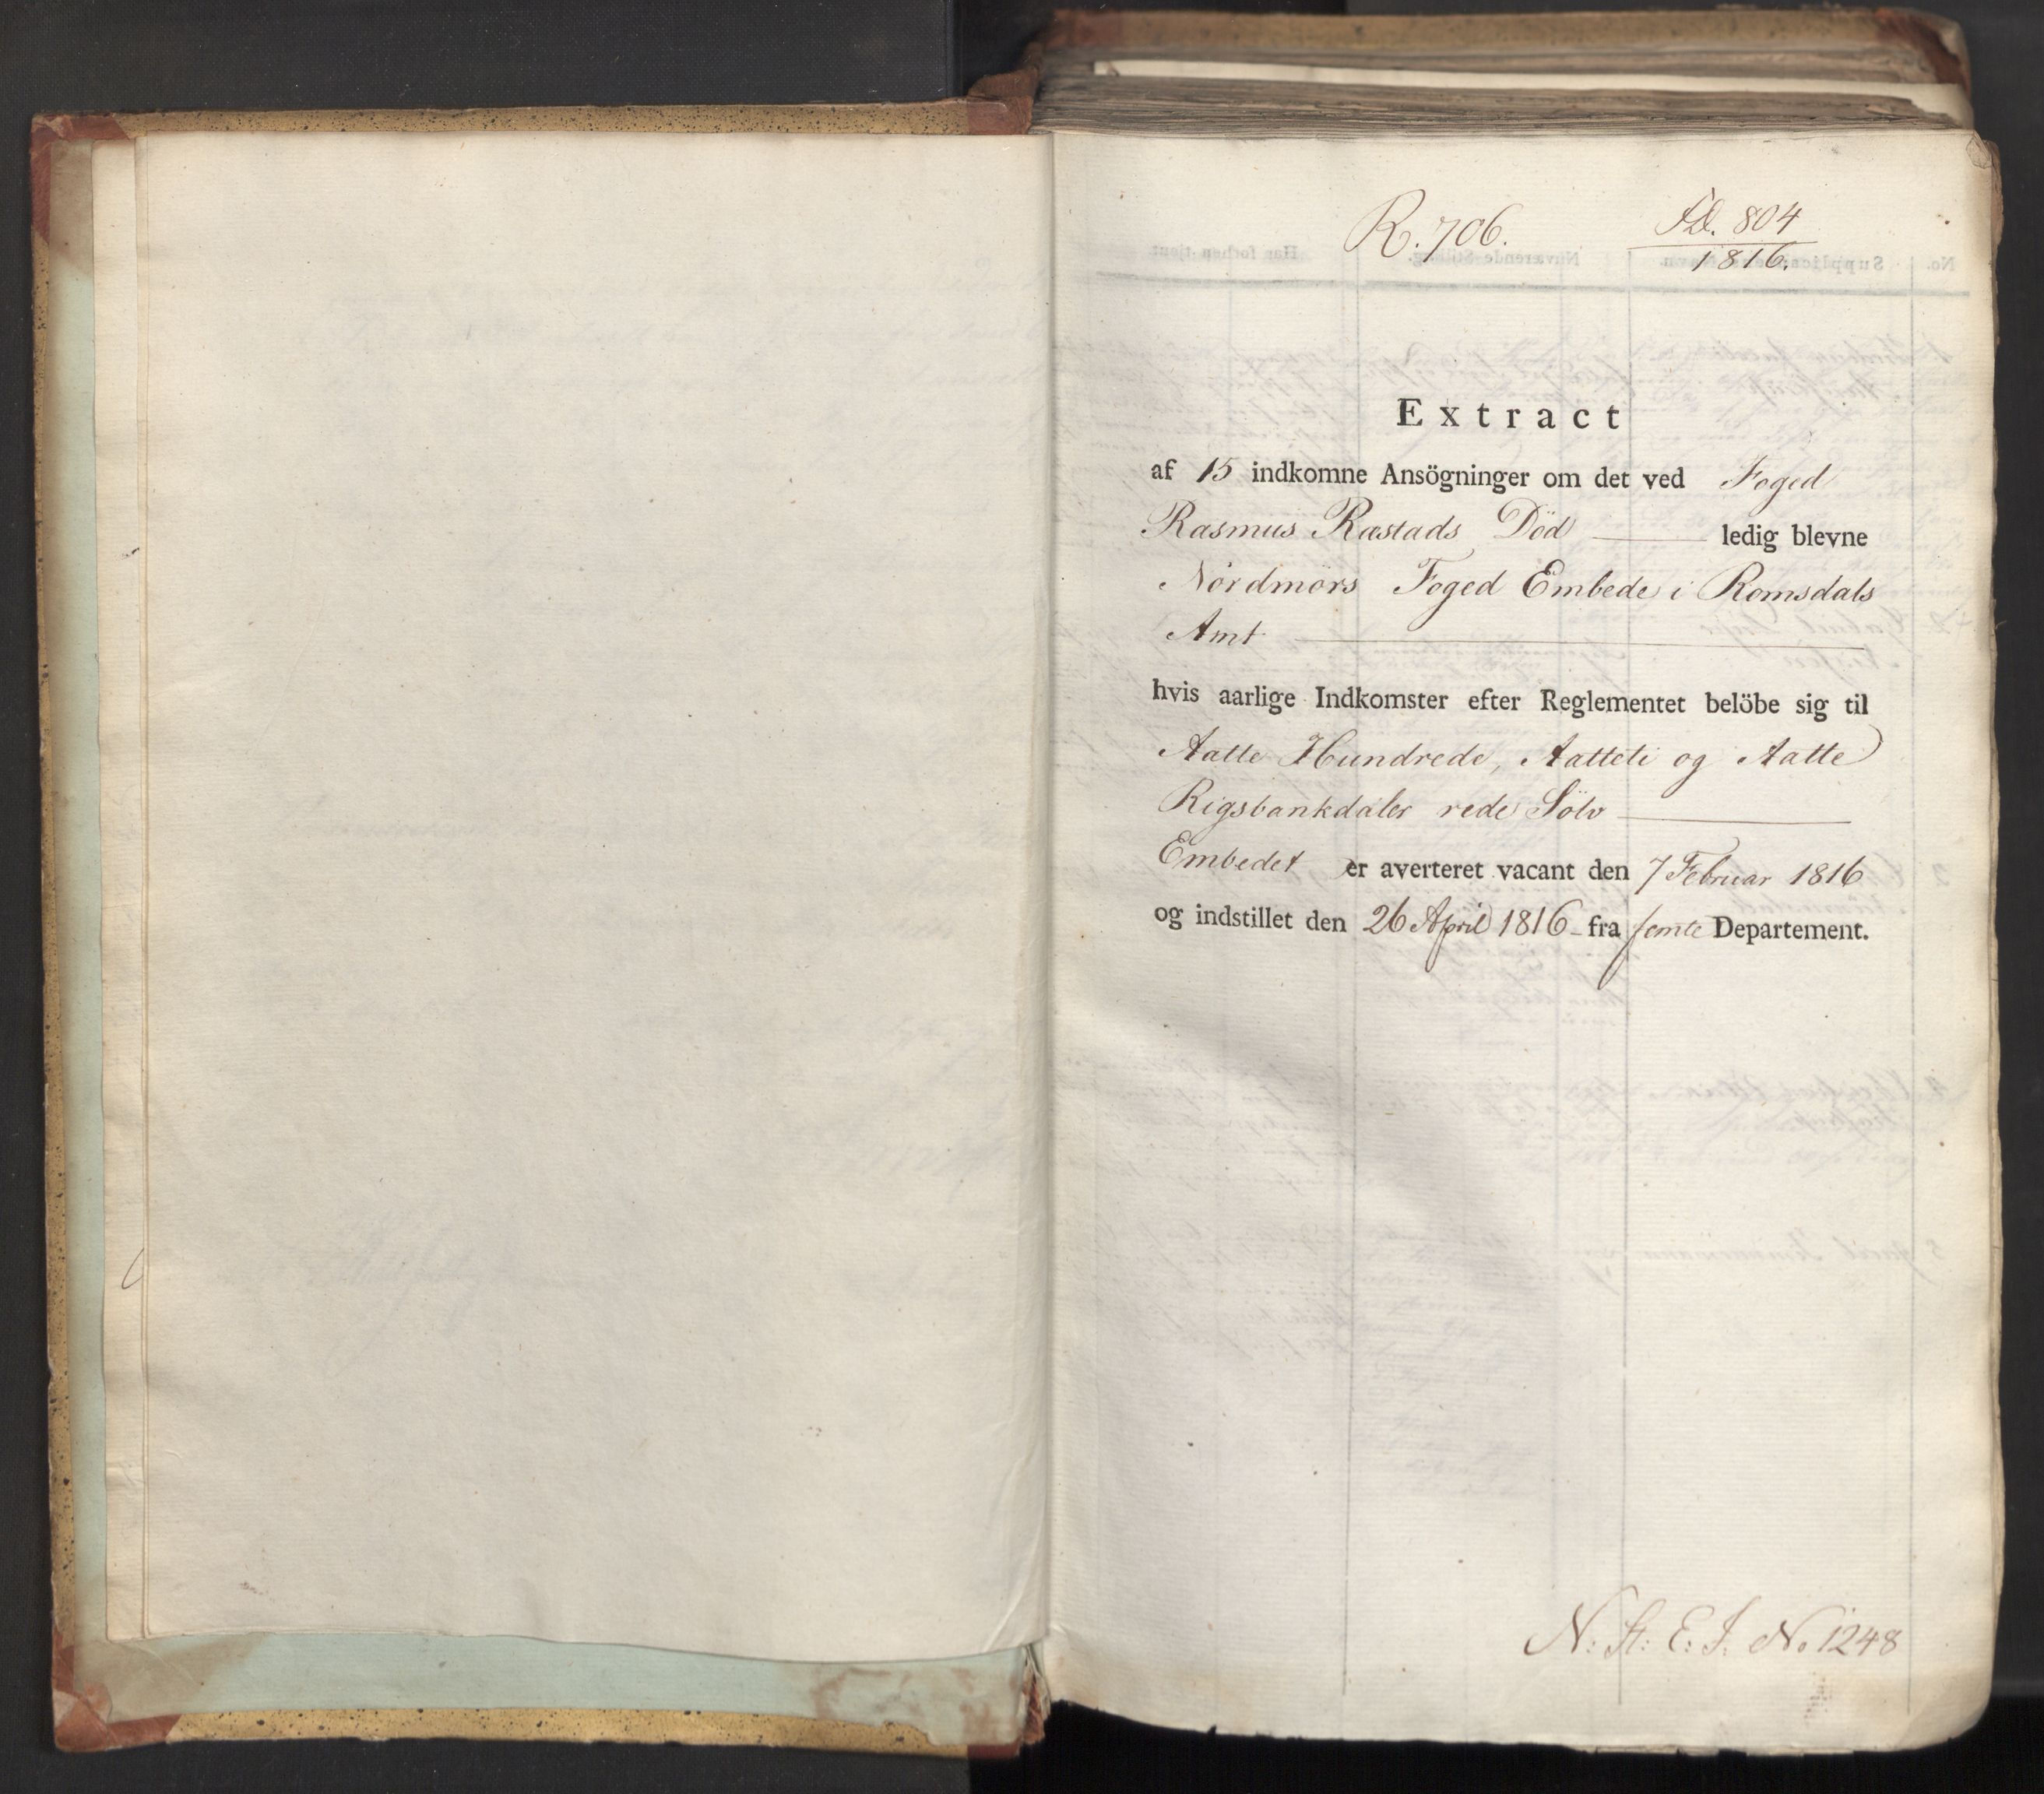 R. 706.
804
1816.
Extract
af 15 indkomne Ansögninger om det ved Foged
Rasmus Rastads Död ledig blevne
Nordmörs Foged Embede i Romsdals
Amt
hvis aarlige Indkomster efter Reglementet belöbe sig til
Aatte Hundrede, Aatteti og Aatte
Rigsbankdaler rede Sölv
Embedet er averteret vacant den 7 Februar 1816
og indstillet den 26 April 1816 - fra femte Departement.
N: St: E: J. No 1248